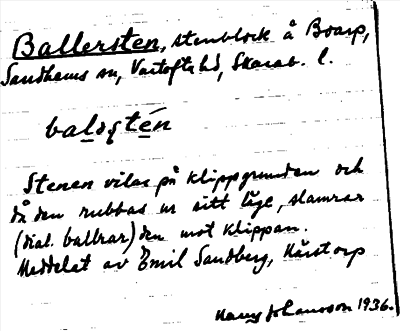 Ballersten, stenblock å Boarp,
Sandhems sn, Vartofta hd, Skarab. l.
balǝʂtén
Stenen vilar på klippgrunden och
då den rubbas ur sitt läge, slamrar
(dial. ballrar) den mot klippan.
Meddelat av Emil Sandberg, Härstorp
Johansson 1936.